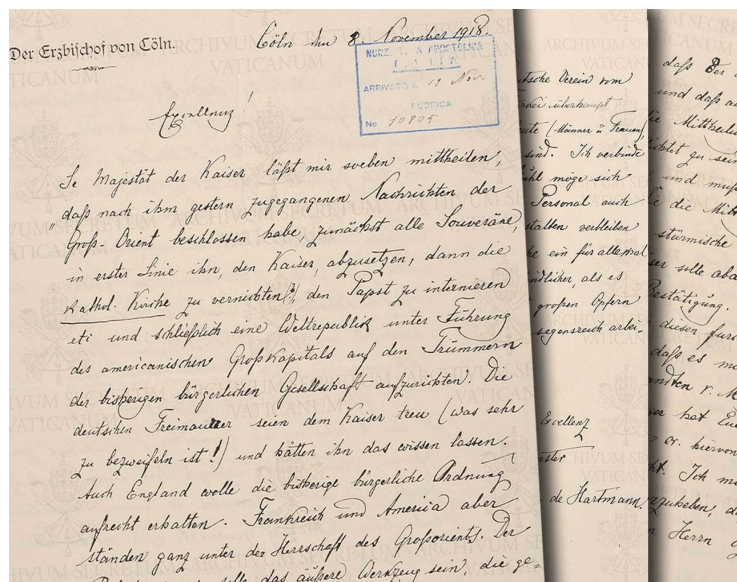 Der Erzbischof von Cöln.
Cöln den 8. November 1918.
NUNZ. APOSTOLICA
ARRIVATO IL 10 Nov.
RUBRICA
No. 10805
Excellenz!
Se Majestät der Kaiser läßt mir soeben mittheilen,
"daß nach ihm gestern zugegangenen Nachrichten der
Groß-Orient beschlossen habe, zunächst alle Souveräne,
in erster Linie ihn, den Kaiser, abzusetzen, dann die
Kathol. Kirche zu vernichten(?), den Papst zu internieren
etc und schließlich eine Weltrepublik unter Führung
des americanischen Großkapitals auf den Trümmern
der bisherigen bürgerlichen Gesellschaft aufzurichten. Die
deutschen Freimaurer seien dem Kaiser treu (was sehr
zu bezweifeln ist!) und hätten ihn das wissen lassen.
Auch England wolle die bisherige bürgerliche Ordnung
aufrecht erhalten. Frankreich und America aber
ständen ganz unter der Herrschaft des Großorients. Der
solle das äußere Werkzeug sein, die ge=
utsche Verein vom
überhaupt
(Männer u Frauen)
sind. Ich verbinde
möge sich
Personal auch
stalten verbleiben
ke ein für allemal
ndlicher, als es
großen Opfern
segensreich arbei,
Excellenz
de Hartmann.
daß der
und daß au
Mittheilu
zu sein
und muß
die Mitt
stürmische
ser solle aba
Bestätigung.
dieser fur
daß es m
r. M
er hat Eue
or. hiervon
kt. Ich m
zugeben, d
Herrn